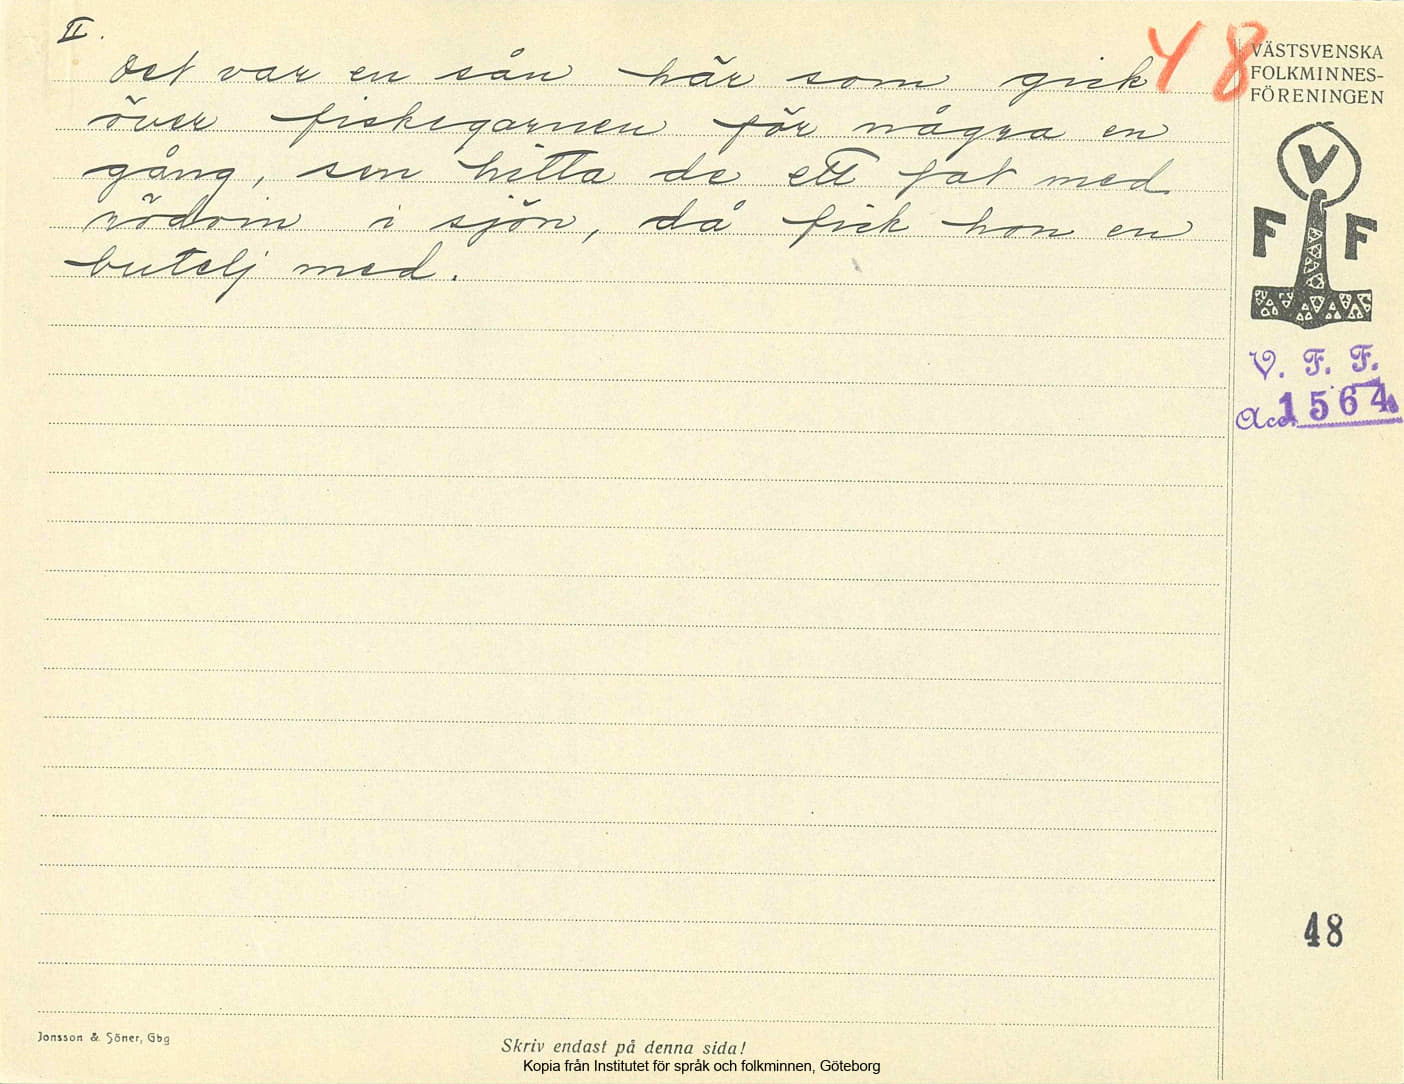 II.
Det var en sån här som gick
över fiskegarnen för några en
gång, sen hitta de ett fat med
rödvin i sjön, då fick hon en
butelj med.
48
VÄSTSVENSKA
FOLKMINNES-
FÖRENINGEN
V
F F
V. F. F.
Acc. 1564
48
Jonsson & Söner, Gbg
Skriv endast på denna sida!
Kopia från Institutet för språk och folkminnen, Göteborg